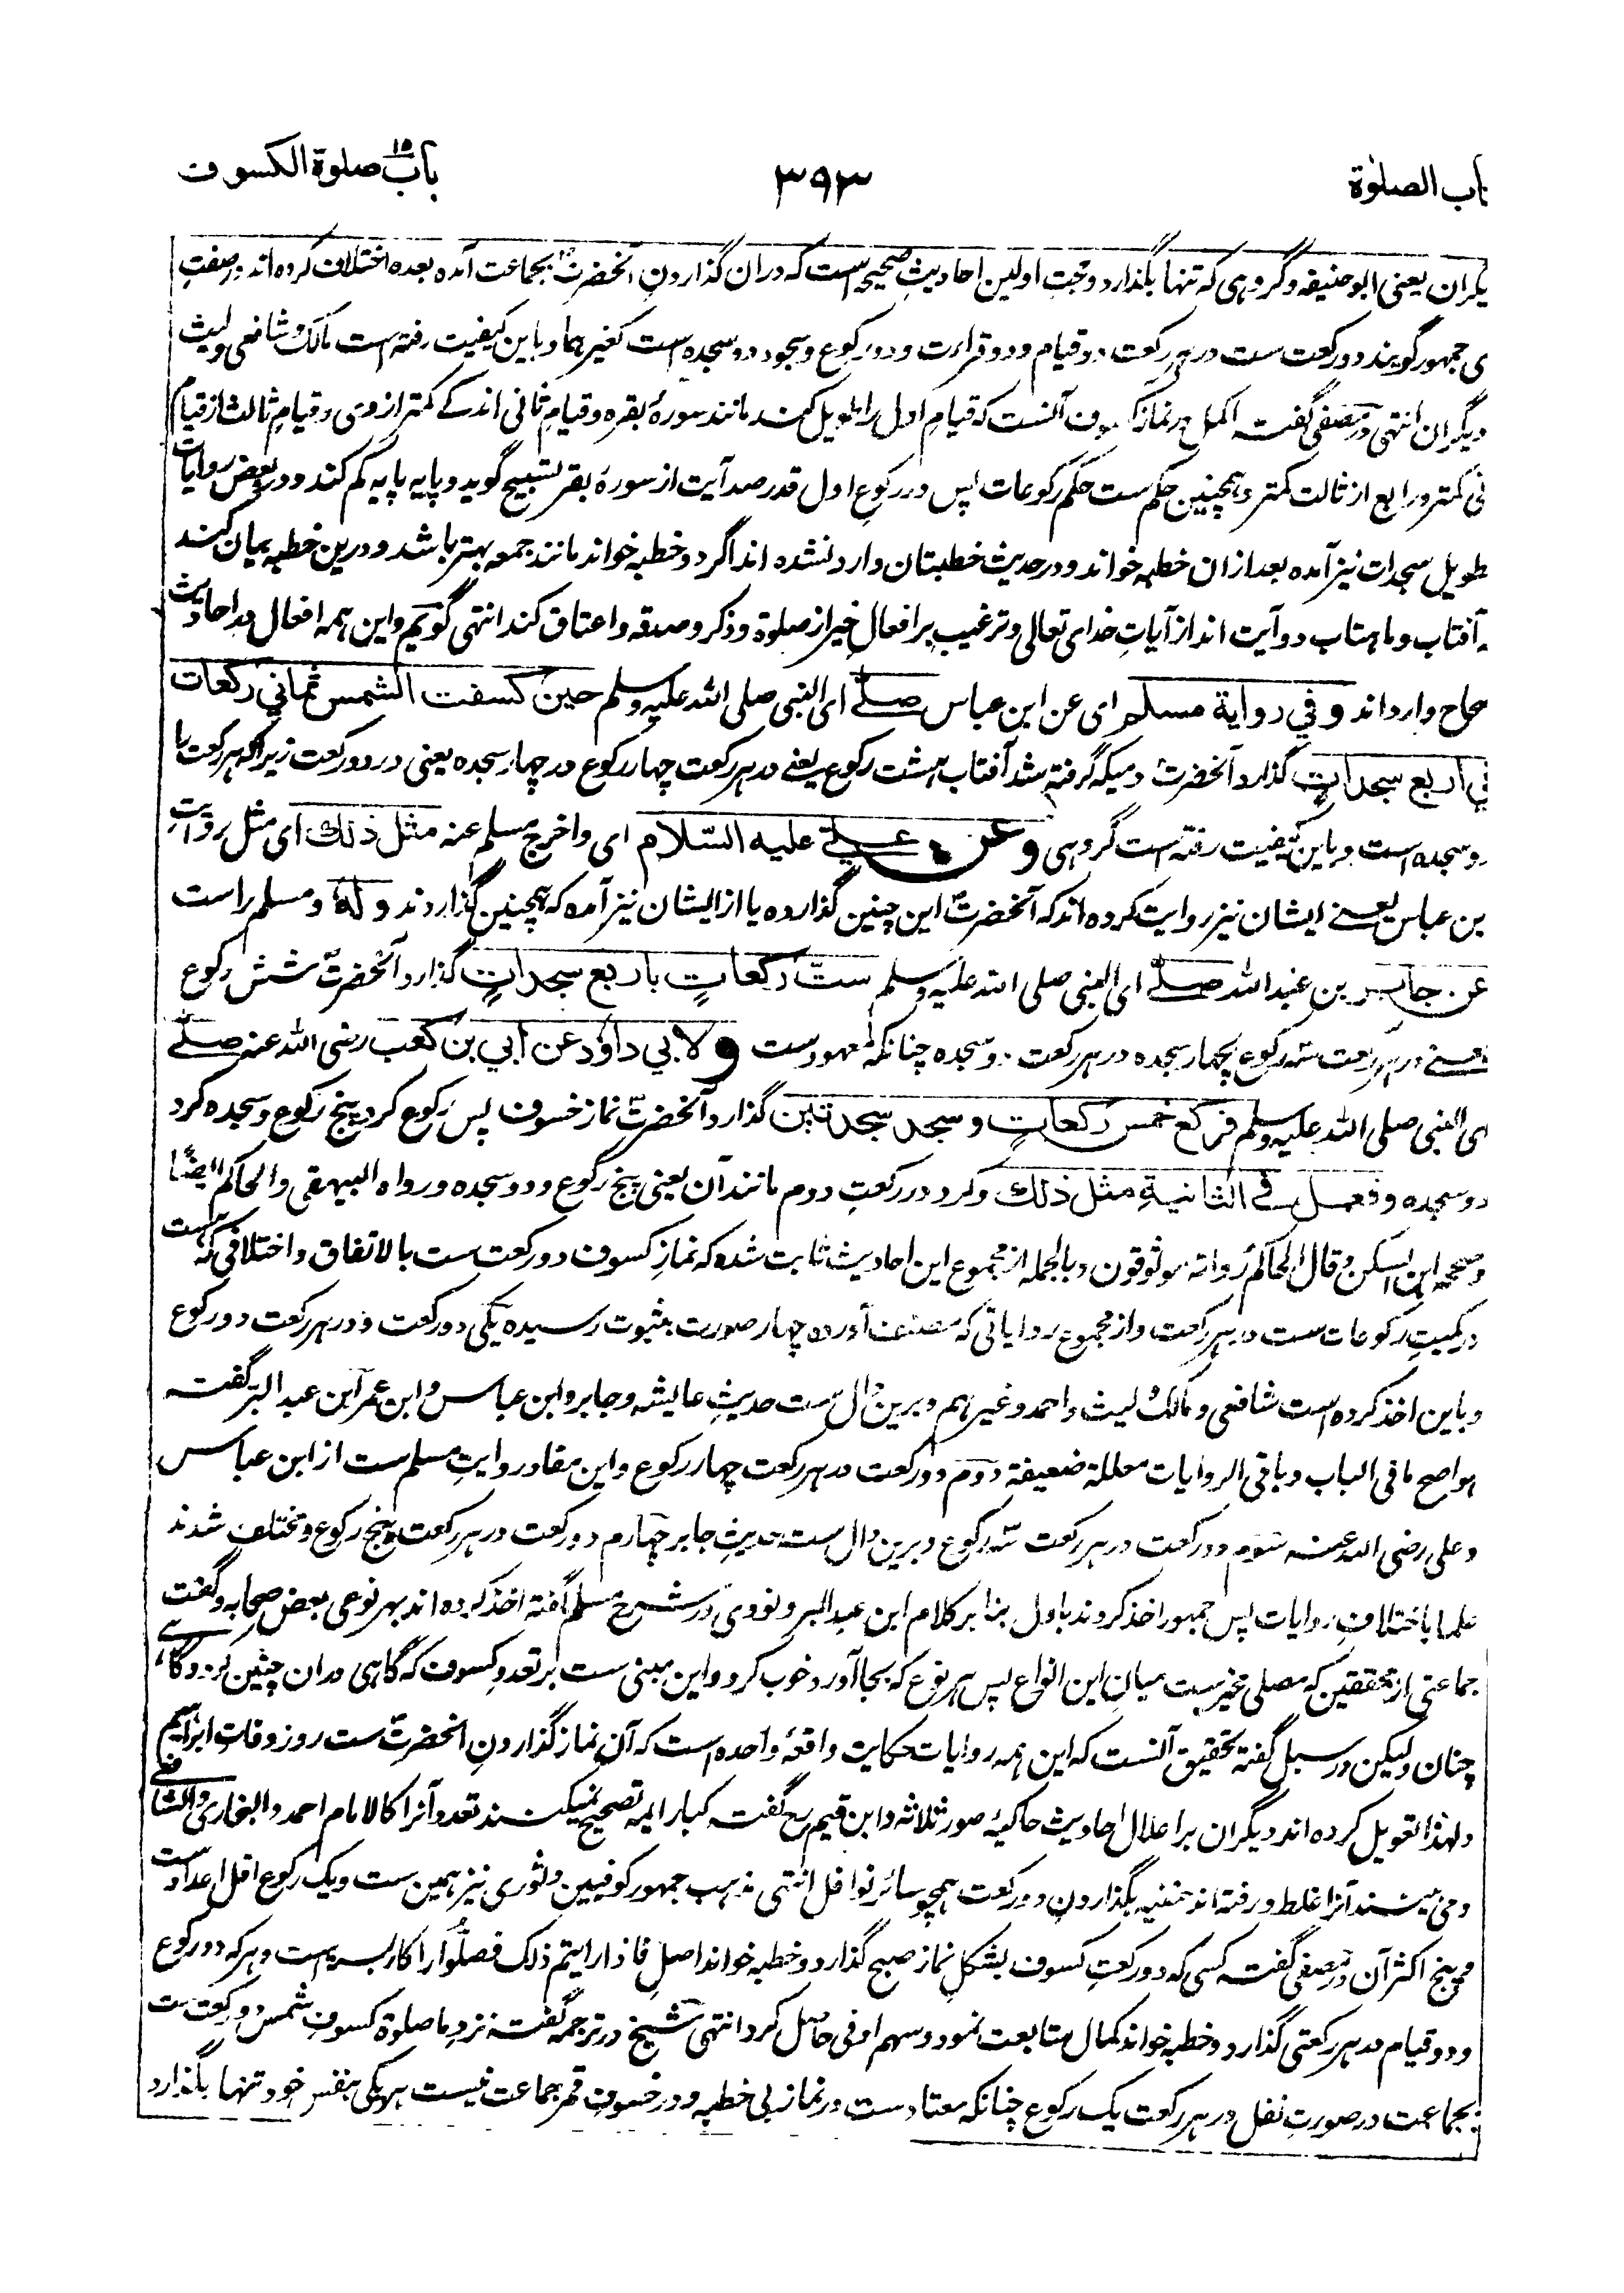 اب الصلوٰة
٣٩٣
باب صلوة الكسوف
۱۵
یگران یعنی ابو حنیفه و گروهی که تنها بگذارد و حجت اولین احادیثِ صحیحه است که دران گذاردنِ آنحضرتؐ بجماعت آمده بعده اختلاف کرده اند در صفتِ
ی جمهور گویند دو رکعت ست در هر رکعت دو قیام و دو قراءت و دو رکوع و سجود دو سجده است کغیرهما و باین کیفیت رفته است مالک و شافعی و لیث
دیگران انتهی در مصفی گفته اکمل در نماز کسوف آنست که قیامِ اول را طویل کند مانند سورهٔ بقره و قیامِ ثانی اندکے کمتر از وی و قیامِ ثالث از قیام
نی کمتر و رابع از ثالث کمتر و همچنین حکم ست حکم رکوعات پس در رکوعِ اول قدر صد آیت از سورهٔ بقر تسبیح گوید و پایه پایه کم کند و در بعض روایات
طویل سجدات نیز آمده بعد ازان خطبه خواند و در حدیث خطبتان وارد نشده اند اگر دو خطبه خواند مانند جمعه بهتر باشد و درین خطبه بیان کند
ـه آفتاب و ماهتاب دو آیت اند از آیاتِ خدای تعالی و ترغیب بر افعالِ خیر از صلوة و ذکر و صدقه و اعتاق کند انتهی گویم و این همه افعال در احادیث
حاح وارد اند وفي رواية مسلم ای عن ابن عباس صلّے ای النبی صلی الله علیه وسلم حين كسفت الشمس ثماني ركعات
في اربع سجدات گذارد آنحضرتؐ دمیکه گرفته شد آفتاب هشت رکوع یعنے در هر رکعت چهار رکوع در چهار سجده یعنی در دو رکعت زیراکه هر رکعت را
دو سجده است و باین کیفیت رفته است گروهی وعن علي عليه السّلام ای و اخرج مسلم عنه مثل ذلك ای مثل روایتِ
بن عباس یعنے ایشان نیز روایت کرده اند که آنحضرتؐ این چنین گذارده یا از ایشان نیز آمده که همچنین گذاردند وله و مسلم راست
عن جابر بن عبد الله صلّے ای النبی صلی الله علیه وسلم ستّ ركعاتٍ باربع سجداتٍ گذارد آنحضرتؐ شش رکوع
یعنے در هر رکعت سه رکوع بچهار سجده در هر رکعت دو سجده چنانکه معهودست ولابي داوٗد عن ابي بن كعب رضی الله عنه صلّے
ای النبی صلی الله علیه وسلم فركع خمس ركعاتٍ وسجد سجدتين گذارد آنحضرتؐ نمازِ خسوف پس رکوع کرد پنج رکوع و سجده کرد
دو سجده وفعل في الثانيةِ مثل ذلك و کرد در رکعتِ دوم مانند آن یعنی پنج رکوع و دو سجده و رواه البیهقی والحاکم ایضًا
و صححه ابن السکن و قال الحاکم رواته موثوقون و بالجمله از مجموع این احادیث ثابت شده که نمازِ کسوف دو رکعت ست بالاتفاق و اختلافی که هست
در کمیتِ رکوعات ست در هر رکعت و از مجموع روایاتی که مصنف آورده چهار صورت بثبوت رسیده یکی دو رکعت و در هر رکعت دو رکوع
و باین اخذ کرده است شافعی و مالک و لیث و احمد و غیرهم و برین دال ست حدیثِ عایشه و جابر و ابن عباس و ابن عمر ابن عبد البر گفته
هو اصح ما فی الباب و باقی الروایات معللة ضعیفة دوم دو رکعت در هر رکعت چهار رکوع و این مفاد روایتِ مسلم ست از ابن عباس
و علی رضی الله عنه سوم دو رکعت در هر رکعت سه رکوع و برین دال ست حدیثِ جابر چهارم دو رکعت در هر رکعت پنج رکوع و مختلف شدند
علما باختلافِ روایات پس جمهور اخذ کردند باول بنا بر کلام ابن عبد البر و نووی در شرح مسلم گفته اخذ کرده اند بهر نوعی بعض صحابه و گفت
جماعتی از محققین که مصلی مخیرست میانِ این انواع پس هر نوع که بجا آورد خوب کرد و این مبنی ست بر تعددِ کسوف که گاهی در ان چنین کرد و گاهے
چنان و لیکن در سبل گفته تحقیق آنست که این همه روایات حکایت واقعهٔ واحده است که آن نماز گذاردنِ آنحضرتؐ ست روز وفاتِ ابراهیم
و لهذا تعویل کرده اند دیگران بر اعلالِ احادیث حاکیهٔ صور ثلاثه و ابن قیم رح گفته کبار ایمه تصحیح نمیکنند تعدد آنرا کالامام احمد والبخاری والشافعے
و می بینند آنرا غلط و رفته اند حنفیه بگذاردنِ دو رکعت همچو سائر نوافل انتهی مذهب جمهور کوفیین و ثوری نیز همین ست و یک رکوع اقلِ اعداد ست
و پنج اکثر آن در مصفی گفته کسی که دو رکعتِ کسوف بشکلِ نماز صبح گذارد و خطبه خواند اصلِ فاذا رایتم ذلک فصلّوا را کاربسته است و هر که دو رکوع
و دو قیام در هر رکعتی گذارد و خطبه خواند کمال متابعت نمود و سهم اوفی حاصل کرد انتهی شیخ در ترجمه گفته نزدِ ما صلوة کسوفِ شمس دو رکعت ست
بجماعت در صورتِ نفل در هر رکعت یک رکوع چنانکه معتادست در نماز بی خطبه و در خسوفِ قمر جماعت نیست هر یکی بنفسِ خود تنها بگذارد